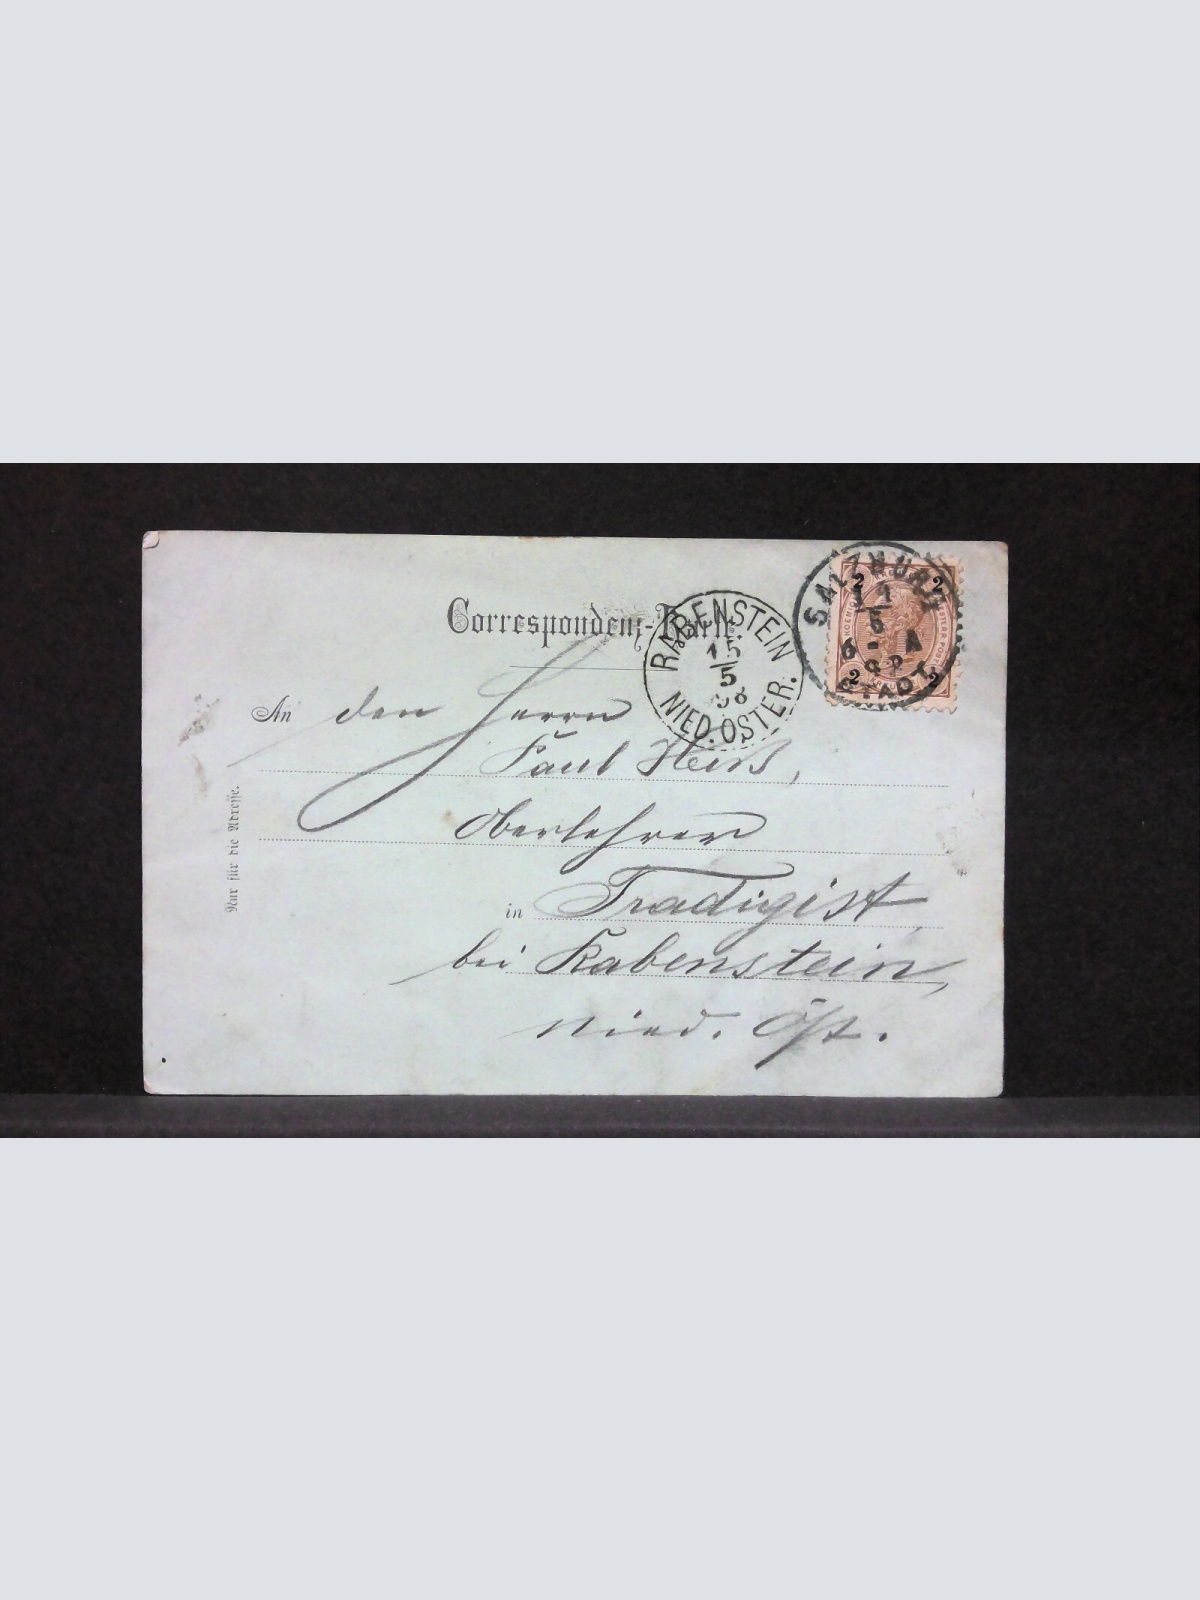 Correspondenz-Karte
RABENSTEIN
15
5
98
NIED. ÖSTER.
SALZBURG
5
6 - A
STADT
2 2
2 2
An den Herrn
Paul Heiß,
Oberlehrer
in Tradigist
bei Rabenstein,
Nied. Öst.
Nur für die Adresse.